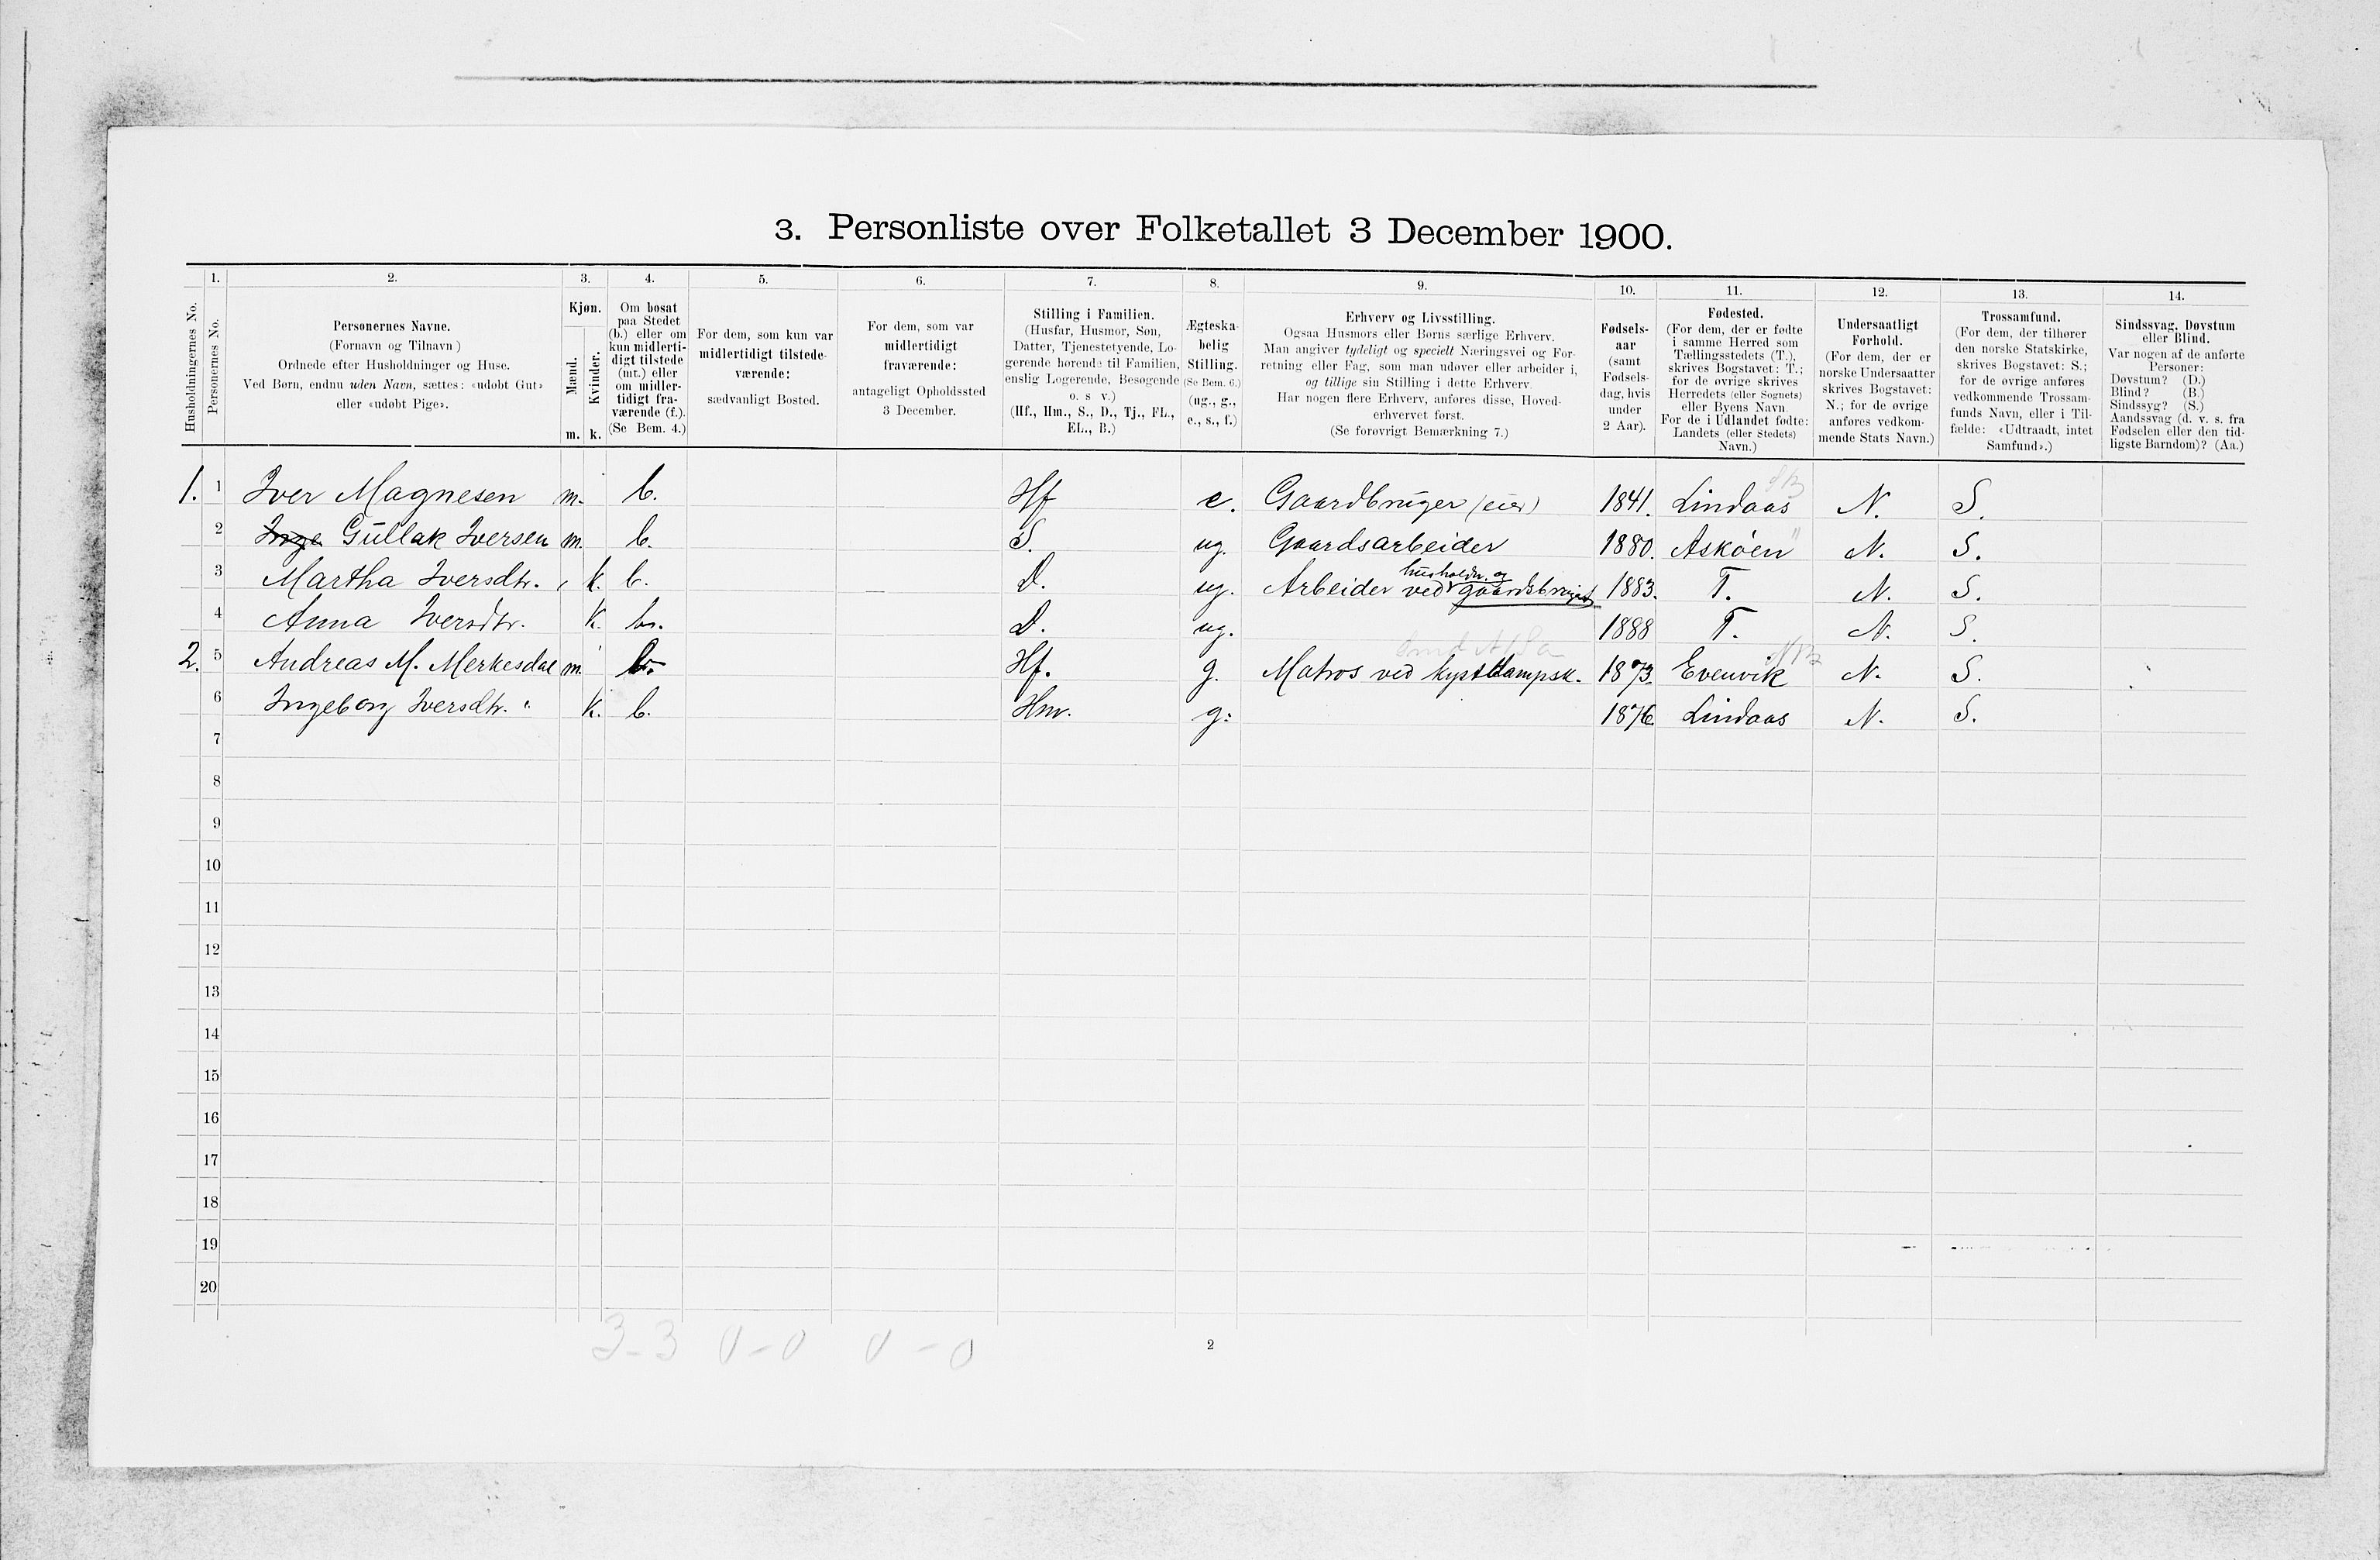 3. Personliste over Folketallet 3 December 1900.
1. 2. 3. 4. 5. 6. 7. 8. 9. 10. 11. 12. 13. 14.
Husholdningernes No.
Personernes No.
Personernes Navne.
(Fornavn og Tilnavn )
Ordnede efter Husholdninger og Huse.
Ved Børn, endnu uden Navn, sættes: «udøbt Gut»
eller «udøbt Pige».
Kjøn.
Mænd.
Kvinder.
m. k.
Om bosat
paa Stedet
(b.) eller om
kun midlerti-
digt tilstede
(mt.) eller
om midler-
tidigt fra-
værende (f.).
(Se Bem. 4.)
For dem, som kun var
midlertidigt tilstede-
værende:
sædvanligt Bosted.
For dem, som var
midlertidigt
fraværende:
antageligt Opholdssted
3 December.
Stilling i Familien.
(Husfar, Husmor, Søn,
Datter, Tjenestetyende, Lo-
gerende hørende til Familien,
enslig Logerende, Besøgende
o. s v.)
(Hf., Hm., S., D., Tj., FL.,
EL., B.)
Ægteska-
belig
Stilling.
(Se Bem. 6.)
(ug., g.,
e., s., f.)
Erhverv og Livsstilling.
Ogsaa Husmors eller Børns særlige Erhverv.
Man angiver tydeligt og specielt Næringsvei og For-
retning eller Fag, som man udøver eller arbeider i,
og tillige sin Stilling i dette Erhverv.
Har nogen flere Erhverv, anføres disse, Hoved-
erhvervet først.
(Se forøvrigt Bemærkning 7.)
Fødsels-
aar
(samt
Fødsels-
dag, hvis
under
2 Aar).
Fødested.
(For dem, der er fødte
i samme Herred som
Tællingsstedets (T.),
skrives Bogstavet: T.;
for de øvrige skrives
Herredets (eller Sognets)
eller Byens Navn.
For de i Udlandet fødte:
Landets (eller Stedets)
Navn.)
Undersaatligt
Forhold.
(For dem, der er
norske Undersaatter
skrives Bogstavet:
N.; for de øvrige
anføres vedkom-
mende Stats Navn.)
Trossamfund.
(For dem, der tilhører
den norske Statskirke,
skrives Bogstavet: S.;
for de øvrige anføres
vedkommende Trossam-
funds Navn, eller i Til-
fælde: «Udtraadt, intet
Samfund».)
Sindssvag, Døvstum
eller Blind.
Var nogen af de anførte
Personer:
Døvstum? (D.)
Blind? (B.)
Sindssyg? (S.)
Aandssvag (d. v. s. fra
Fødselen eller den tid-
ligste Barndom)? (Aa.)
1. 1 Iver Magnesen m. b. Hf e. Gaardbruger (eier) 1841. Lindaas N. S.
2 Inge Gullak Iversen m. b. S. ug. Gaardsarbeider 1880. Askøen N. S.
3 Martha Iversdtr. k. b. D. ug. Arbeider ved husholdn. og gaardsbruget 1883. T. N. S.
4 Anna Iversdtr. k. b. D. ug. 1888 T. N. S.
2. 5 Andreas M. Merkesdal m. b. Hf. g. Matros ved kystdampsk. 1873. Evenvik N. S.
6 Ingeborg Iversdtr. k. b. Hm. g. 1876 Lindaas N. S.
7
8
9
10
11
12
13
14
15
16
17
18
19
20
3-3 0-0 0-0
2